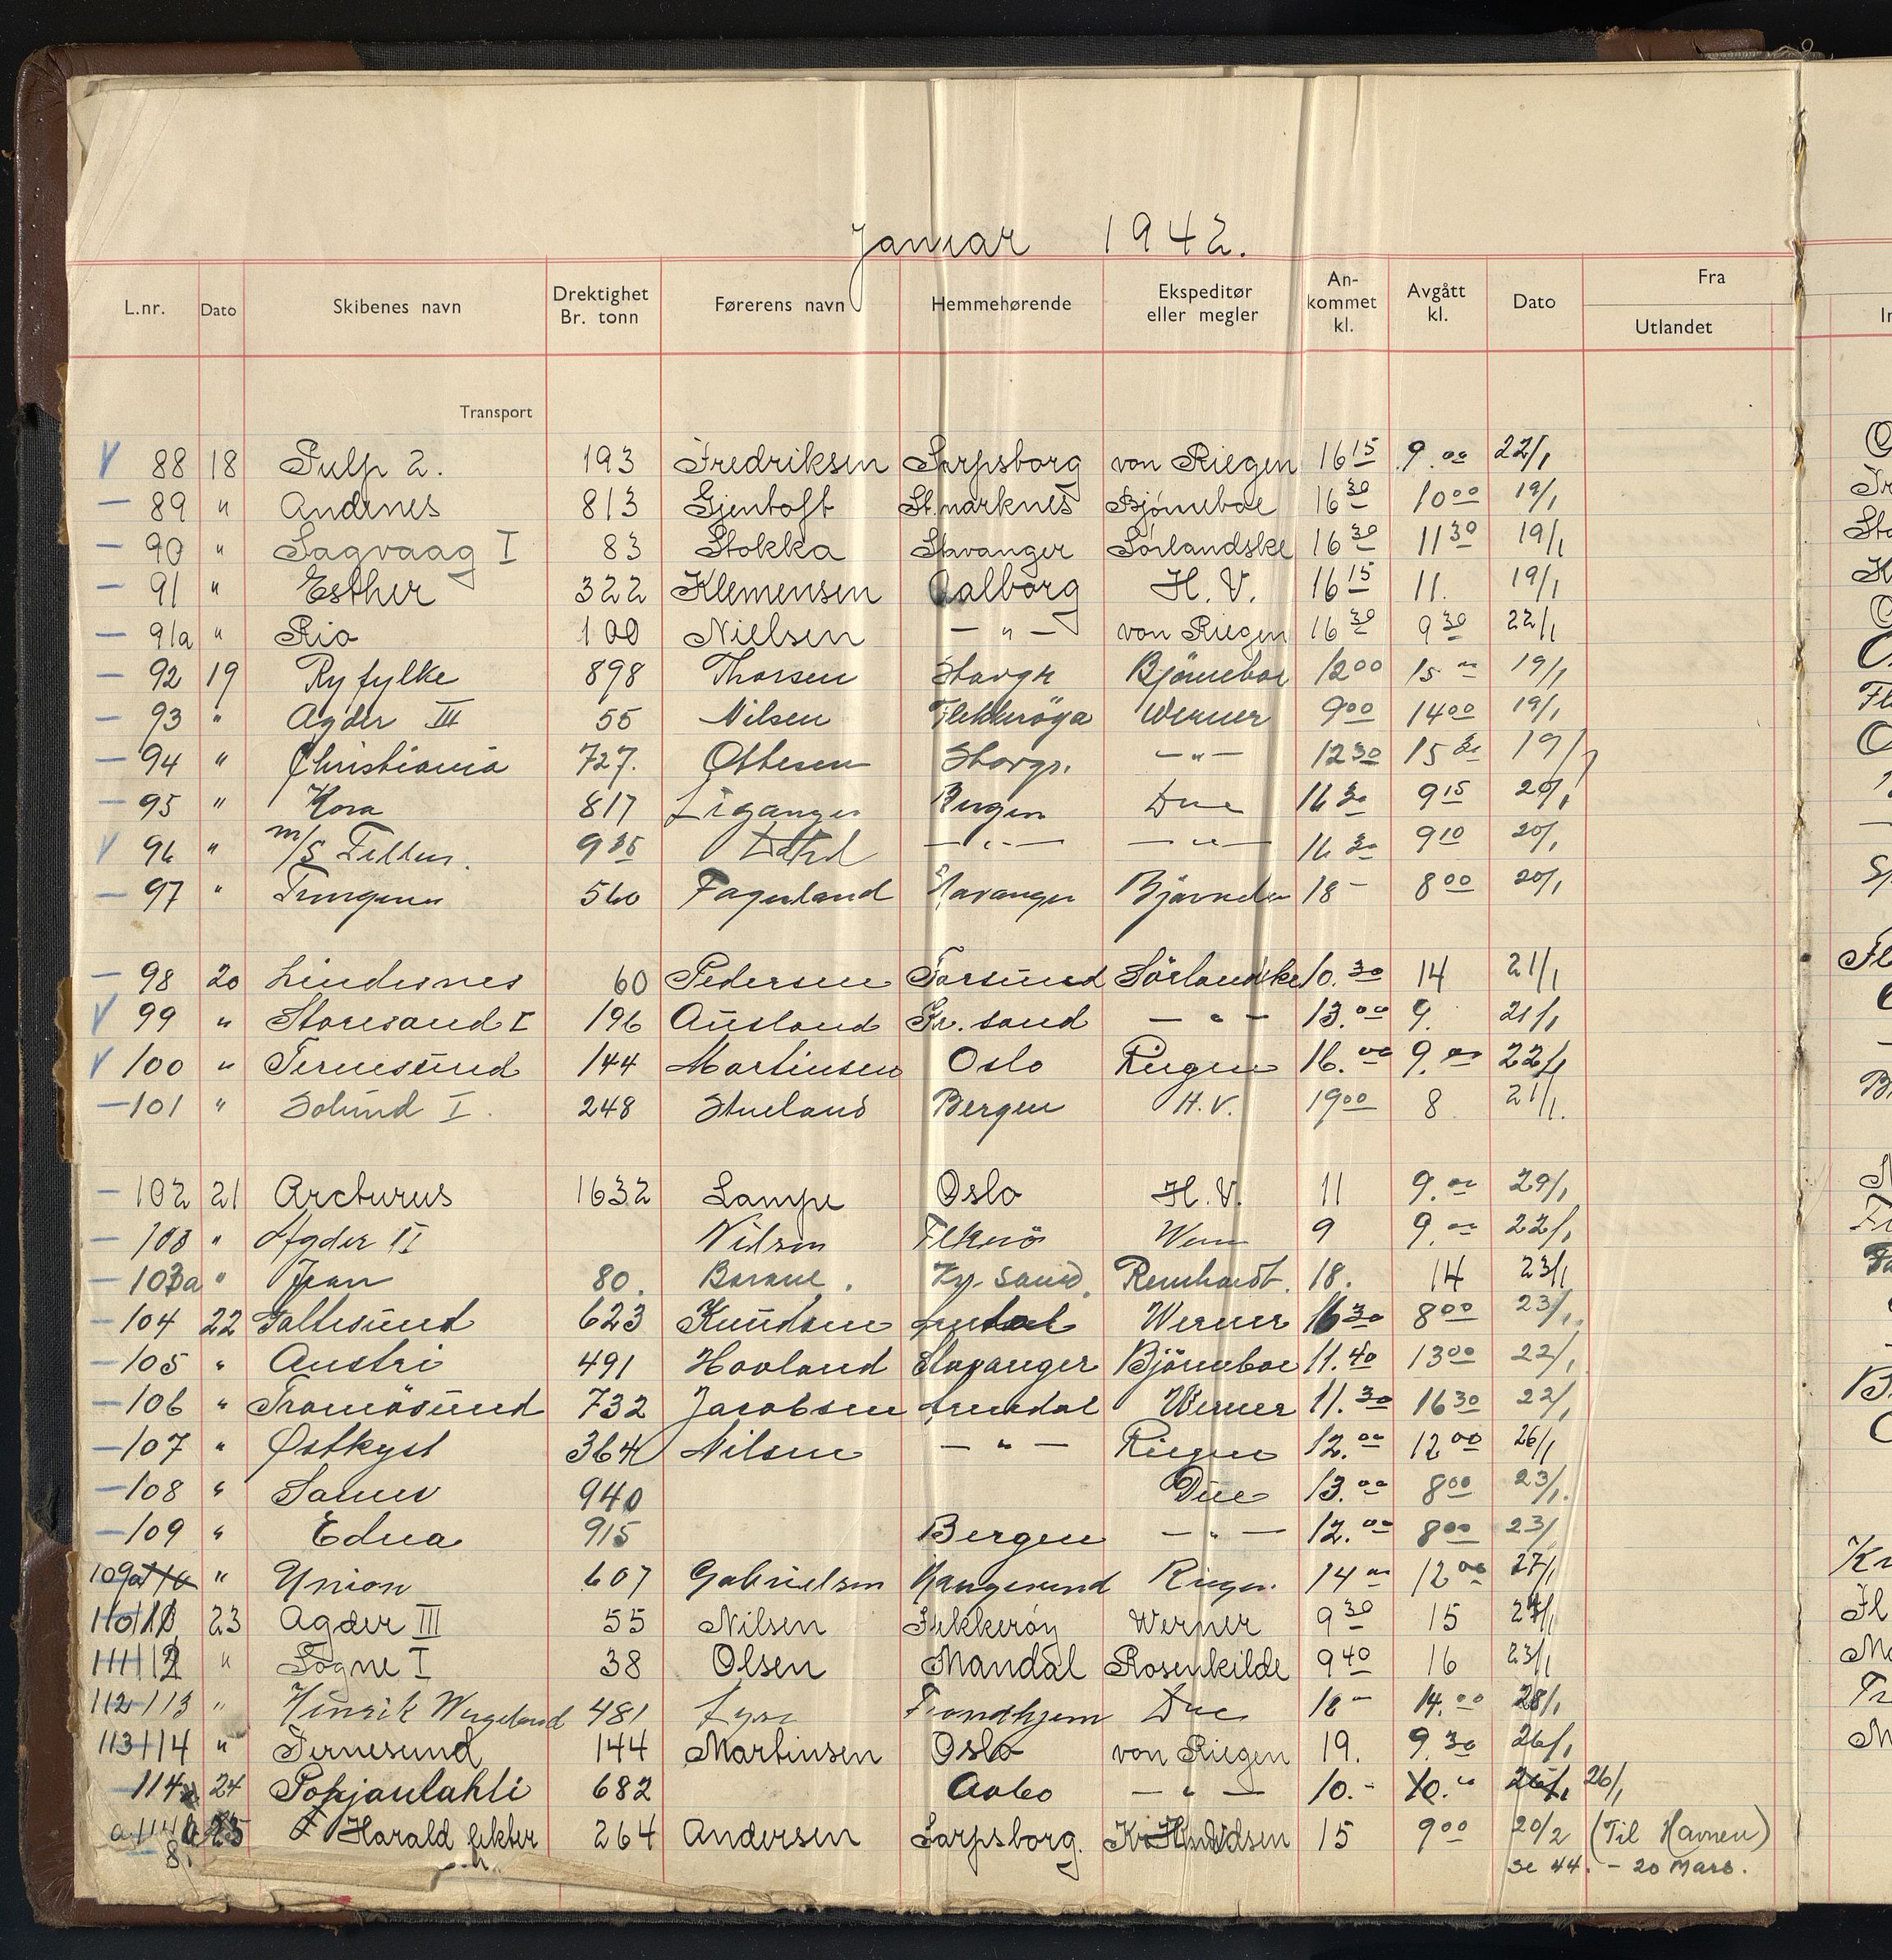 Januar 1942.
L.nr. Dato Skibenes navn Drektighet Br. tonn Førerens navn Hemmehørende Ekspeditør eller megler An-kommet kl. Avgått kl. Dato Fra Utlandet
Transport
V 88 18 Pulp 2. 193 Fredriksen Sarpsborg von Riegen 16 15 9.00 22/1
— 89 " Andenes 813 Gjentoft St.marknes Bjørneboe 16 30 10 00 19/1
— 90 " Sagvaag I 83 Stokka Stavanger Sørlandske 16 30 11 30 19/1
— 91 " Esther 322 Klemensen Aalborg H. V. 16 15 11. 19/1
— 91a " Rio 100 Nielsen — " — von Riegen 16 30 9 30 22/1
— 92 19 Ryfylke 898 Thorsen Stavgr Bjørneboe 12 00 15 00 19/1
— 93 " Agder III 55 Nilsen Flekkerøya Werner 9 00 14 00 19/1
— 94 " Christiania 727. Ottesen Stavgr. — " — 12 30 15 30 19/1
— 95 " Kora 817 Liganger Bergen Due 16 30 9 15 20/1
V 96 " m/S Tellus. 935 — " — — " — 16 30 9 10 20/1
— 97 " Tungenes 560 Fageland Stavanger 18 - 8 00 20/1
— 98 20 Lindesnes 60 Pedersen Farsund Sörlandske 10.30 14 21/1
V 99 " Storesand I 196 Ausland Gr. sand — " — 13.00 9. 21/1
V 100 " Ternesund 144 Martinsen Oslo Riegen 16.00 9.00 22/1
— 101 " Solund I. 248 Stueland Bergen H. V. 19 00 8 21/1.
— 102 21 Arcturus 1632 Lampe Oslo H. V. 11 9.00 29/1
— 103 " Agder II Nilsen Flkrö Wern 9 9.00 22/1
— 103a " Jean 80. Kr. Sand. Remhardt. 18. 14 23/1
— 104 22 Galtesund 623 Knudsen Arendal Werner 16 30 8 00 23/1.
— 105 " Austri 491 Hovland Stavanger Bjørneboe 11.40 13 00 22/1
— 106 " Tromösund 732 Jacobsen Arendal Werner 11.30 16 30 22/1
— 107 " Østkyst 364 Nilsen — " — Riegen 12.00 12 00 26/1
— 108 " Sanev 940 Due 13.00 8 00 23/1.
— 109 " Edna 915 Bergen — " — 12.00 8 00 23/1
109a 110 " Union 607 Gabrielsen Haugesund Riegen 14 00 12 00 27/1
110 111 23 Agder III 55 Nilsen Flekkerøy Werner 9 30 15 24/1
111 112 " Søgne I 38 Olsen Mandal Rosenkilde 9 40 16 23/1
112 113 " Henrik Wergeland 481 Trondhjem Due 18 - 14.00 28/1
113 114 " Ternesund 144 Martinsen Oslo von Riegen 19. 9.30 26/1
— 114 24 Pohjanlahti 682 Aabo — " — 10.- 10. " 26/1 26/1
114 25 Harald 264 Andersen Sarpsborg. Knudsen 15 9 00 20/2 (Til Havnen)
se 44. - 20 Mars.